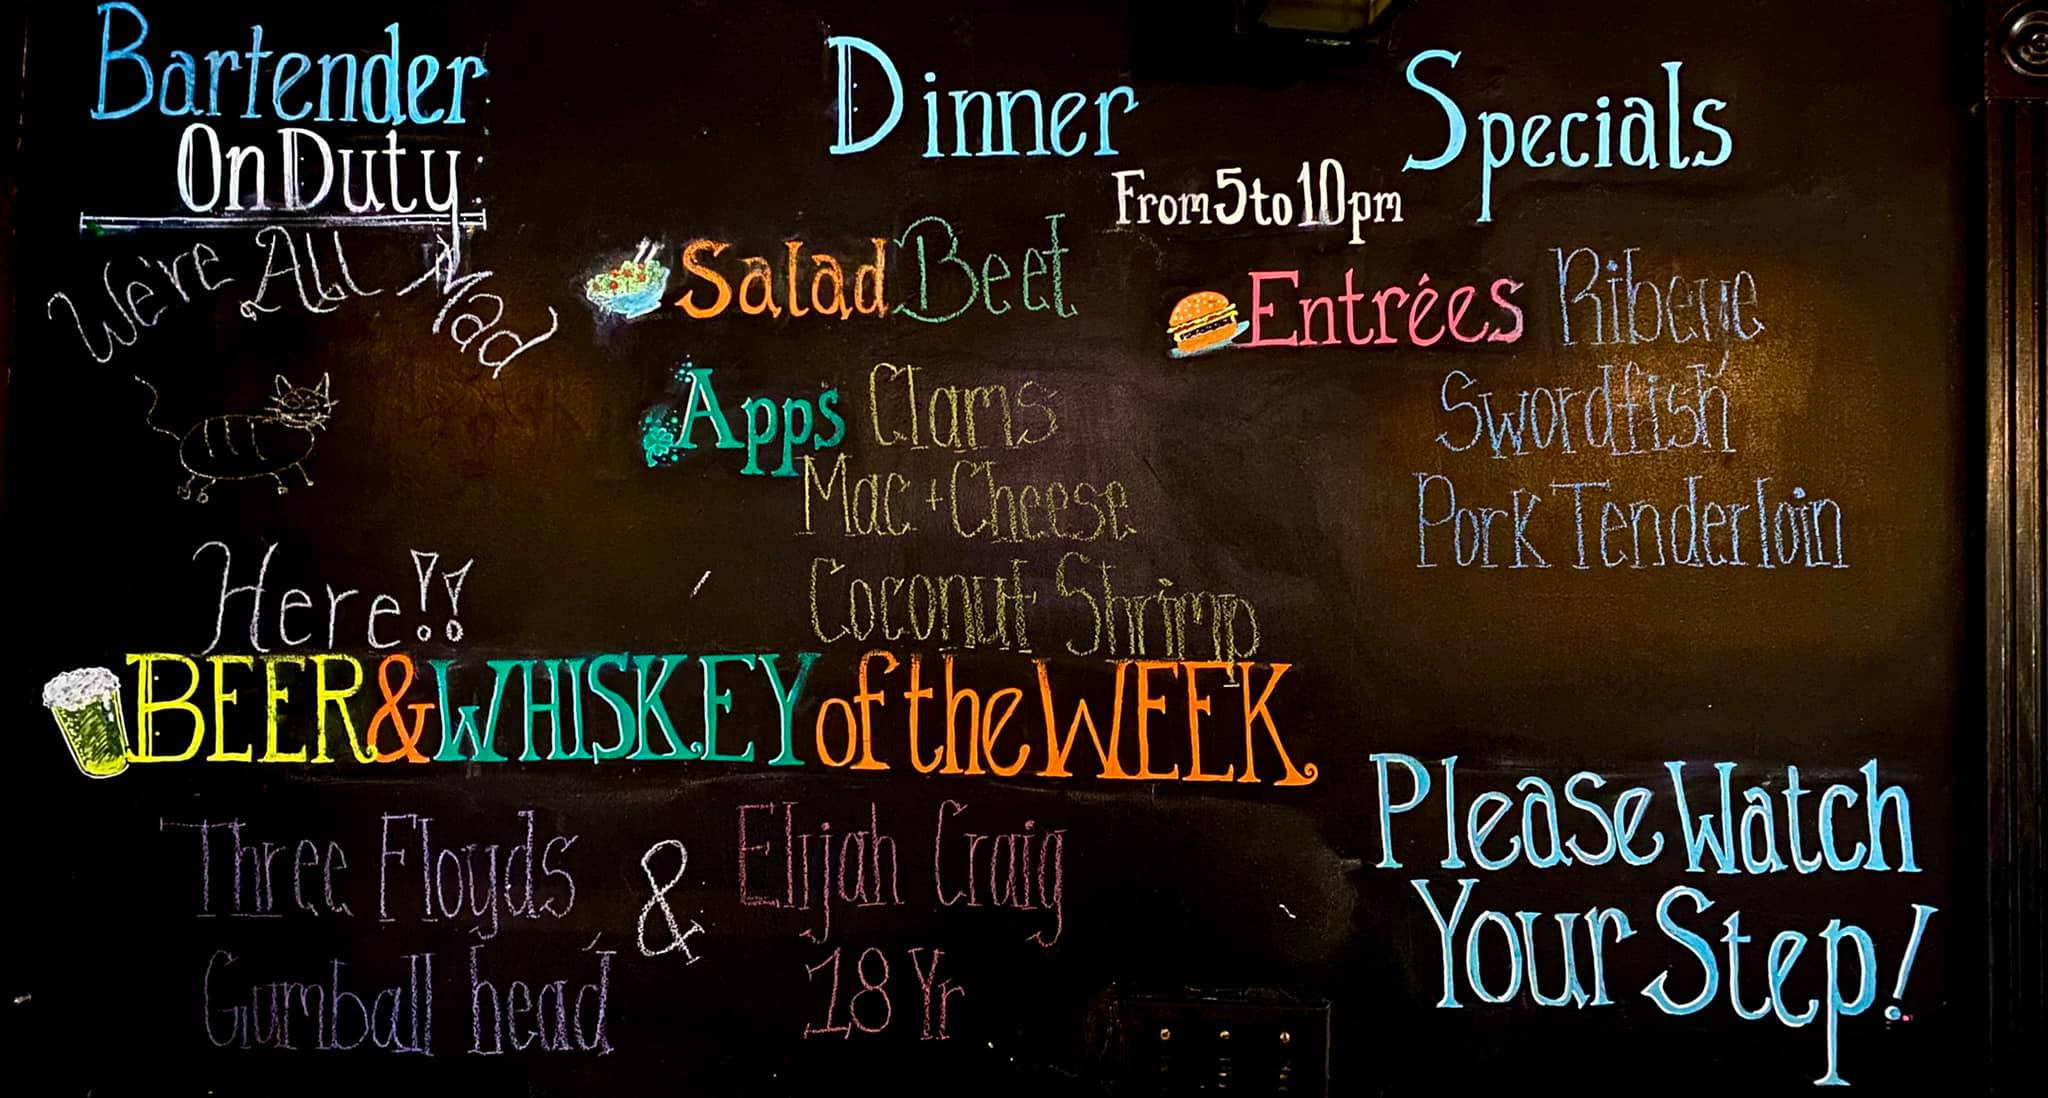 Bartender
On Duty
We're All Mad
Here!!
Dinner Specials
From 5 to 10pm
Salad Beet
Apps Clams
Mac + Cheese
Coconut Shrimp
Entrées Ribeye
Swordfish
Pork Tenderloin
BEER & WHISKEY of the WEEK
Three Floyds
Gumball head
&
Elijah Craig
18 Yr
Please Watch
Your Step!